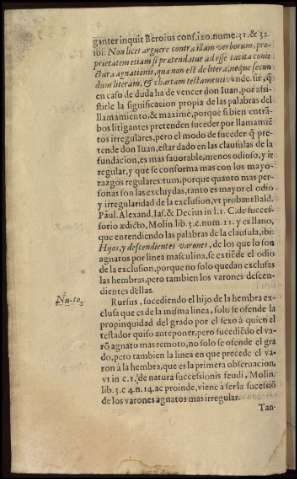 ganter inquit Beroius cons. 120. nume. 31. & 32.
101. Non licet arguere contra illam verborum, pro-
prietatem etiam si prætendatur adesse tacita con-
iectura agnationis, qua non est de litera, neque secun
dum literam, & chartam testamenti: vnde. sit, q̃
en caso de duda ha de vencer don Iuan, por assi-
stirle la significacion propia de las palabras del
llamamiento, & maxime, porque si bien entrã-
bos litigantes pretenden suceder por llamamiẽ
tos irregulares, pero el modo de suceder q̃ pre-
tende don Iuan, estar dado en las clausulas de la
fundacion, es mas fauorable, menos odioso, y ir
regular, y que se conforma mas con los mayo-
razgos regulares: tum, porque quanto mas per-
sonas son las excluydas, tanto es mayor el odio
y irregularidad de la exclusion, vt probant Bald.
Paul. Alexand. Ias. & Decius in l. 1. C. de succes-
sorio ædicto, Molin. lib. 3. c. num. 12. y es llano,
que entendiendo las palabras de la clausula, ibi:
Hijos, y descendientes varones, de los que lo son
agnatos por linea masculina, se estiẽde el odio
de la exclusion, porque no solo quedan exclusas
las hembras, pero tambien los varones descen-
dientes dellas.
Rursus, sucediendo el hijo de la hembra ex
clusa que es de la misma linea, solo se ofende la
propinquidad del grado por el sexo à quien el
testador quiso anteponer, pero sucediẽdo el va-
rõ agnato mas remoto, no solo se ofende el gra
do, pero tambien la linea en que precede el va-
ron à la hembra, que es la primera obseruacion,
vt in c. 1. de natura successionis feudi, Molin.
lib. 3. c. 4. n. 14. ac proinde, viene à ser la sucessiõ
de los varones agnatos mas irregular.
Tan-